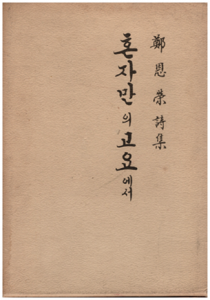 鄭恩榮詩集
혼자만의 고요에서